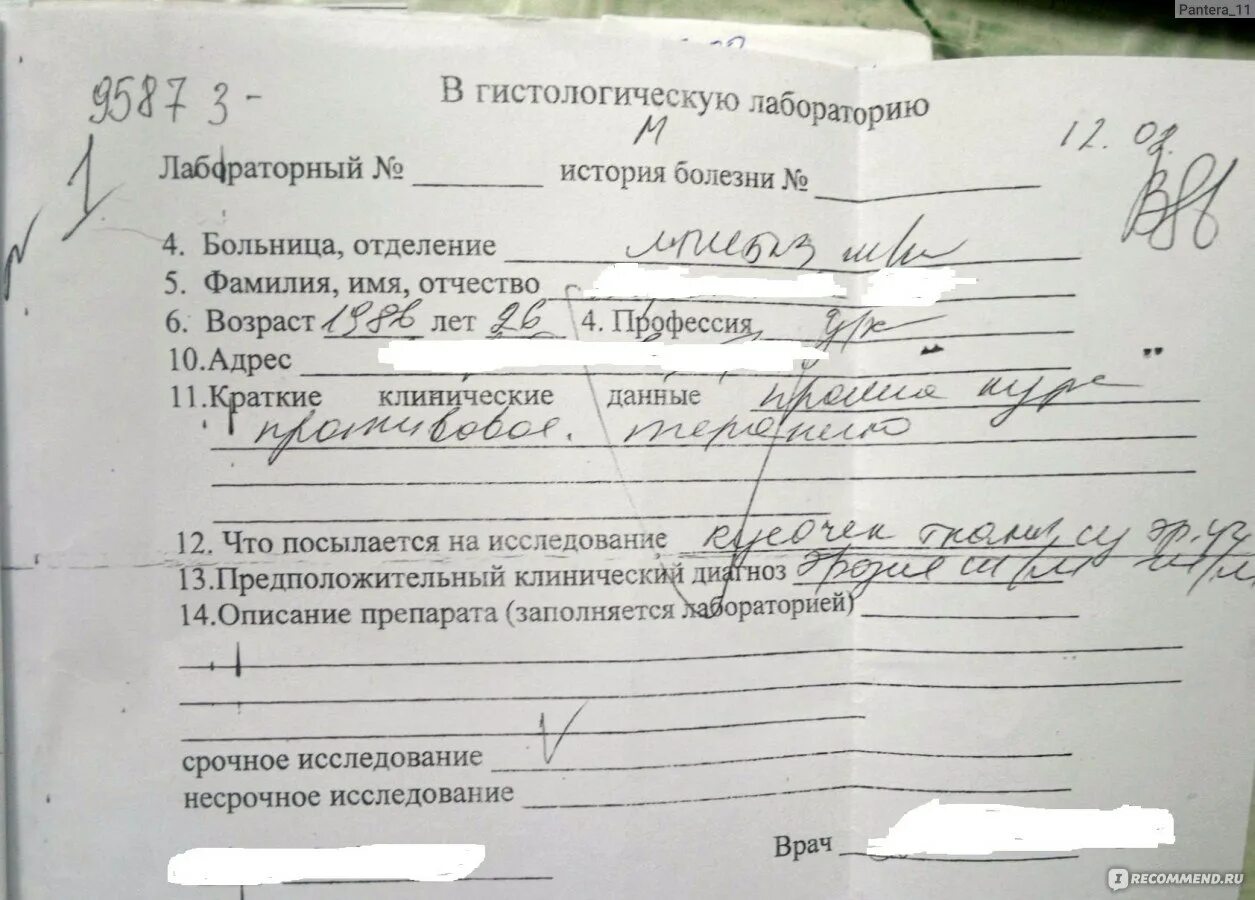 Pantera_11
95873-
В гистологическую лабораторию
М
12.02
1
Лабораторный № история болезни №
4. Больница, отделение
5. Фамилия, имя, отчество
6. Возраст 1986 лет 26 4. Профессия д/х
10.Адрес
11.Краткие клинические данные прошла курс
противовос. терапию
12. Что посылается на исследование кусочек ткани с эр. уч
13.Предположительный клинический диагноз Эрозия ш/м ш/м
14.Описание препарата (заполняется лабораторией)
срочное исследование
несрочное исследование
Врач
IRECOMMEND.RU